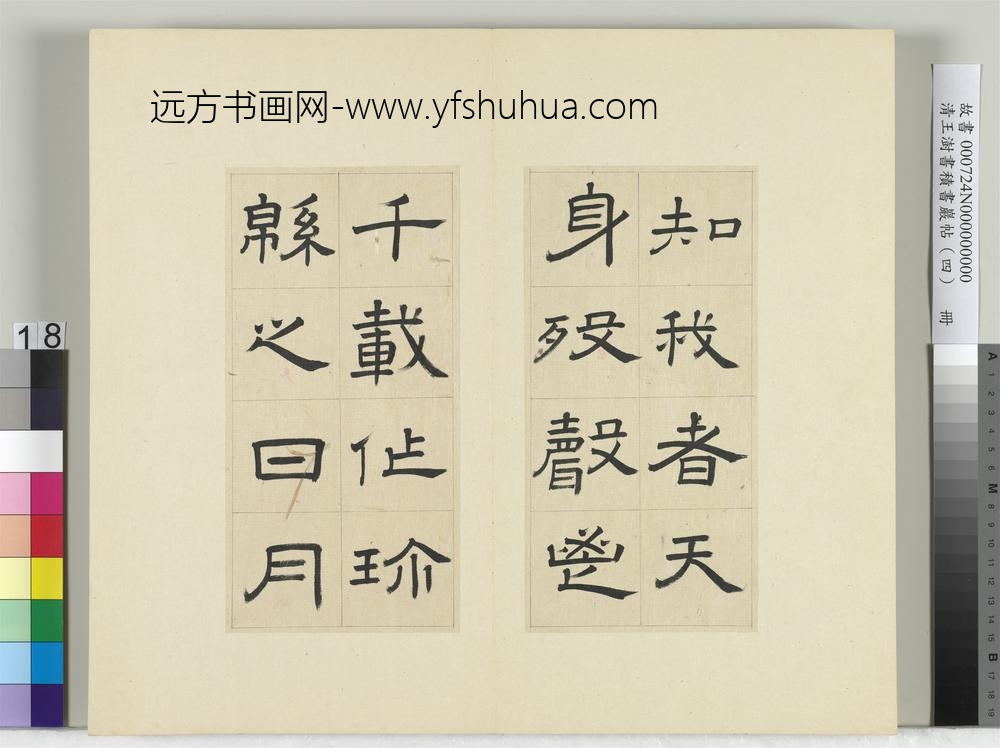 远方书画网-www.yfshuhua.com
知我者天
身歿聲鬯
千載
緜之日月
故書 000724N000000000
清王澍書積書巖帖（四） 冊
18
A 1 2 3 4 5 6 M 8 9 10 11 12 13 14 15 B 17 18 19